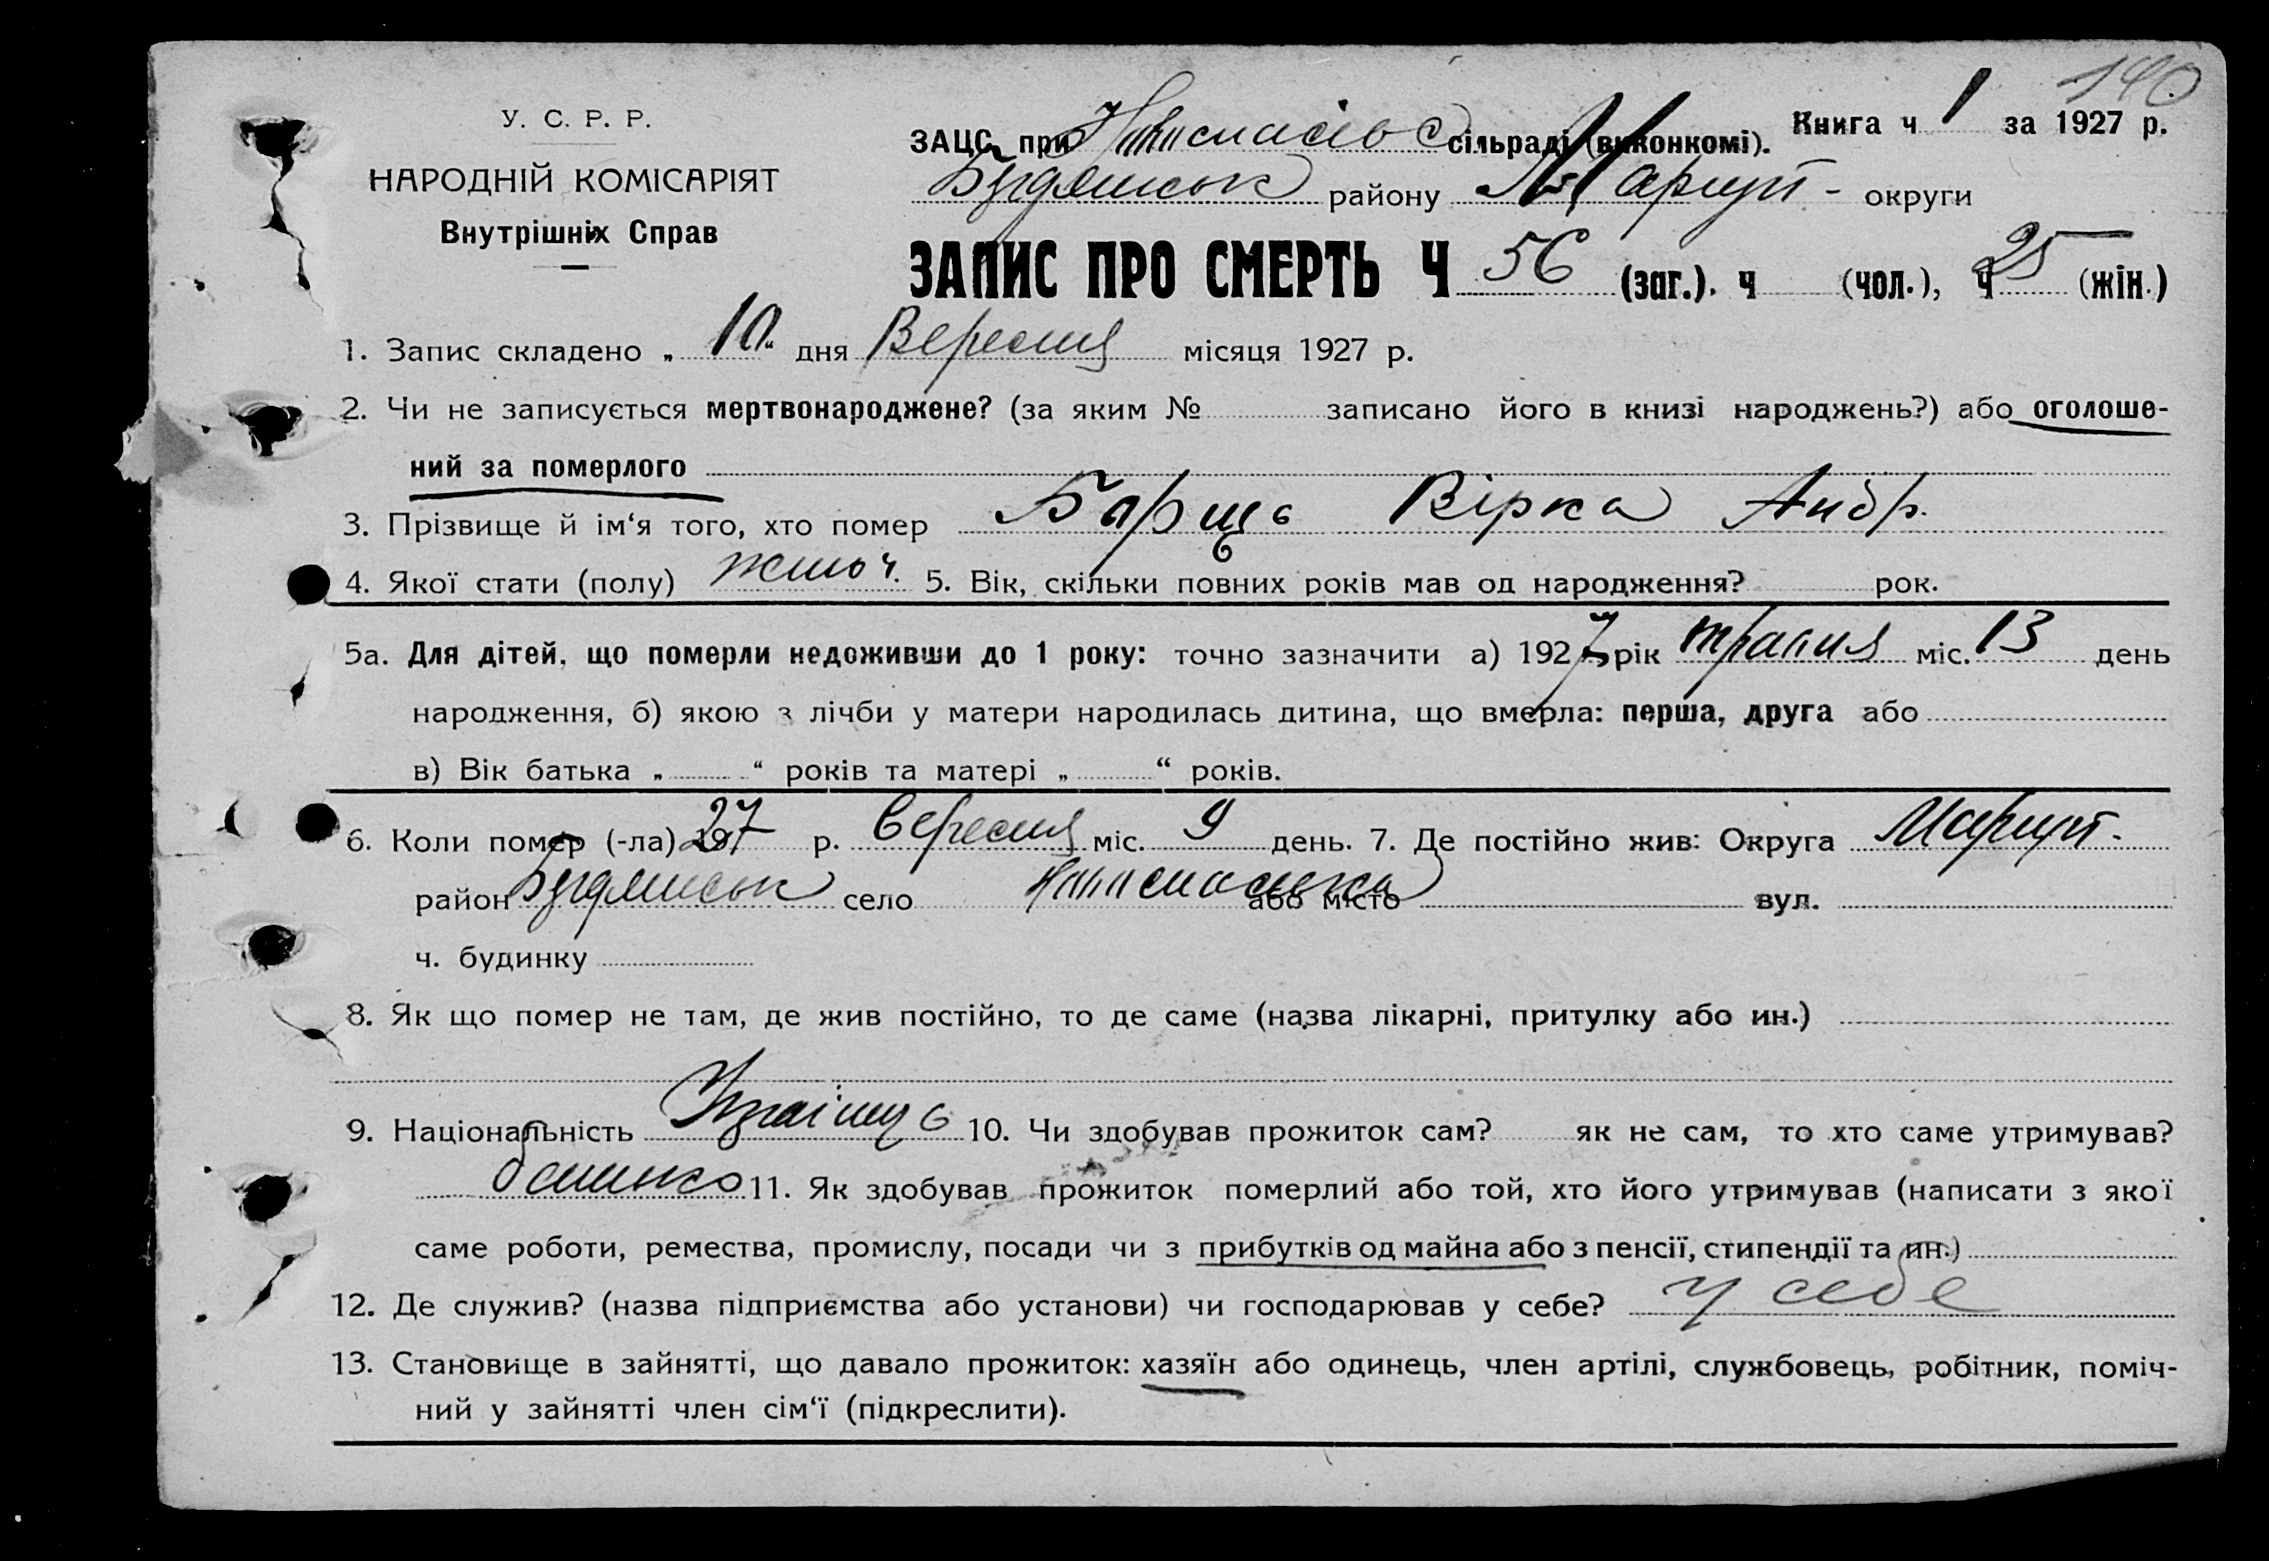 140
У. С. Р. Р.
НАРОДНІЙ КОМІСАРІЯТ
Внутрішніх Справ
ЗАЦС при сільраді (виконкомі). Книга ч 1 за 1927 р.
району Маріуп- округи
ЗАПИС ПРО СМЕРТЬ Ч 56 (заг.). ч (чол.), ч 25 (жін.)
1. Запис складено „ 10 “ дня Вересня місяця 1927 р.
2. Чи не записується мертвонароджене? (за яким № записано його в книзі народжень?) або оголоше-
ний за померлого
3. Прізвище й ім‘я того, хто помер Барщь Вірка Андр.
4. Якої стати (полу) жіноч. 5. Вік, скільки повних років мав од народження? рок.
5а. Для дітей, що померли недоживши до 1 року: точно зазначити а) 1927 рік травня міс. 13 день
народження, б) якою з лічби у матери народилась дитина, що вмерла: перша, друга або
в) Вік батька „ “ років та матері „ “ років.
6. Коли помер (-ла) 1927 р. вересня міс. 9 день. 7. Де постійно жив: Округа Маріуп.
район село або місто вул.
ч. будинку
8. Як що помер не там, де жив постійно, то де саме (назва лікарні, притулку або ин.)
9. Національність 10. Чи здобував прожиток сам? як не сам, то хто саме утримував?
батько 11. Як здобував прожиток померлий або той, хто його утримував (написати з якої
саме роботи, ремества, промислу, посади чи з прибутків од майна або з пенсії, стипендії та ин.)
12. Де служив? (назва підприємства або установи) чи господарював у себе? у себе
13. Становище в зайнятті, що давало прожиток: хазяїн або одинець, член артілі, службовець, робітник, поміч-
ний у зайнятті член сім‘ї (підкреслити).